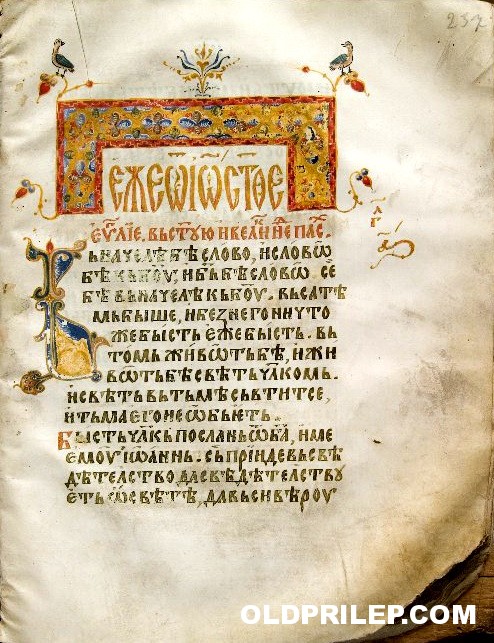 257
ЕЖЕѾІѠСТ҃ѲЕ
ЕѴ҃ЛІЕ. ВЬСТ҃ѸЮ ИВЕЛИ НЕ ПАС
ЬНАЧЕЛѢБѢСЛОВО, ИСЛОВѠ
БѢ КЬБОУ, ИБ҃ЬБѢСЛОВѠ. СЕ
БѢ ВЬНАЧЕЛѢКЬБОУ. ВЬСАТѢ
МЬБЫШЕ, ИБЕZНЕГОНИЧТО
ЖЕБЫСТЬ ЕЖЕБЫСТЬ. ВЬ
ТОМЬ ЖИВѠТЬБѢ, ИЖИ
ВѠТЬБѢСВѢТЬЧЛ҃КОМЬ.
ИСВѢТЬ ВЬТЬМѢСЬВТИТСЕ,
ИТЬМАЕГОНЕѠБЬЕТЬ.
БЫСТЬЧЛ҃КЬПОСЛАНЬѾБ҃А, ИМЕ
ЕМОУ ІѠАННЬ. СЬПРІИДЕВЬСВѢ
ДѢТЕЛСТВО, ДАСВѢДѢТЕЛСТВУ
ЕТЬ ѠСВѢТѢ, ДАВЬСИВѢРОУ
OLDPRILEP.COM